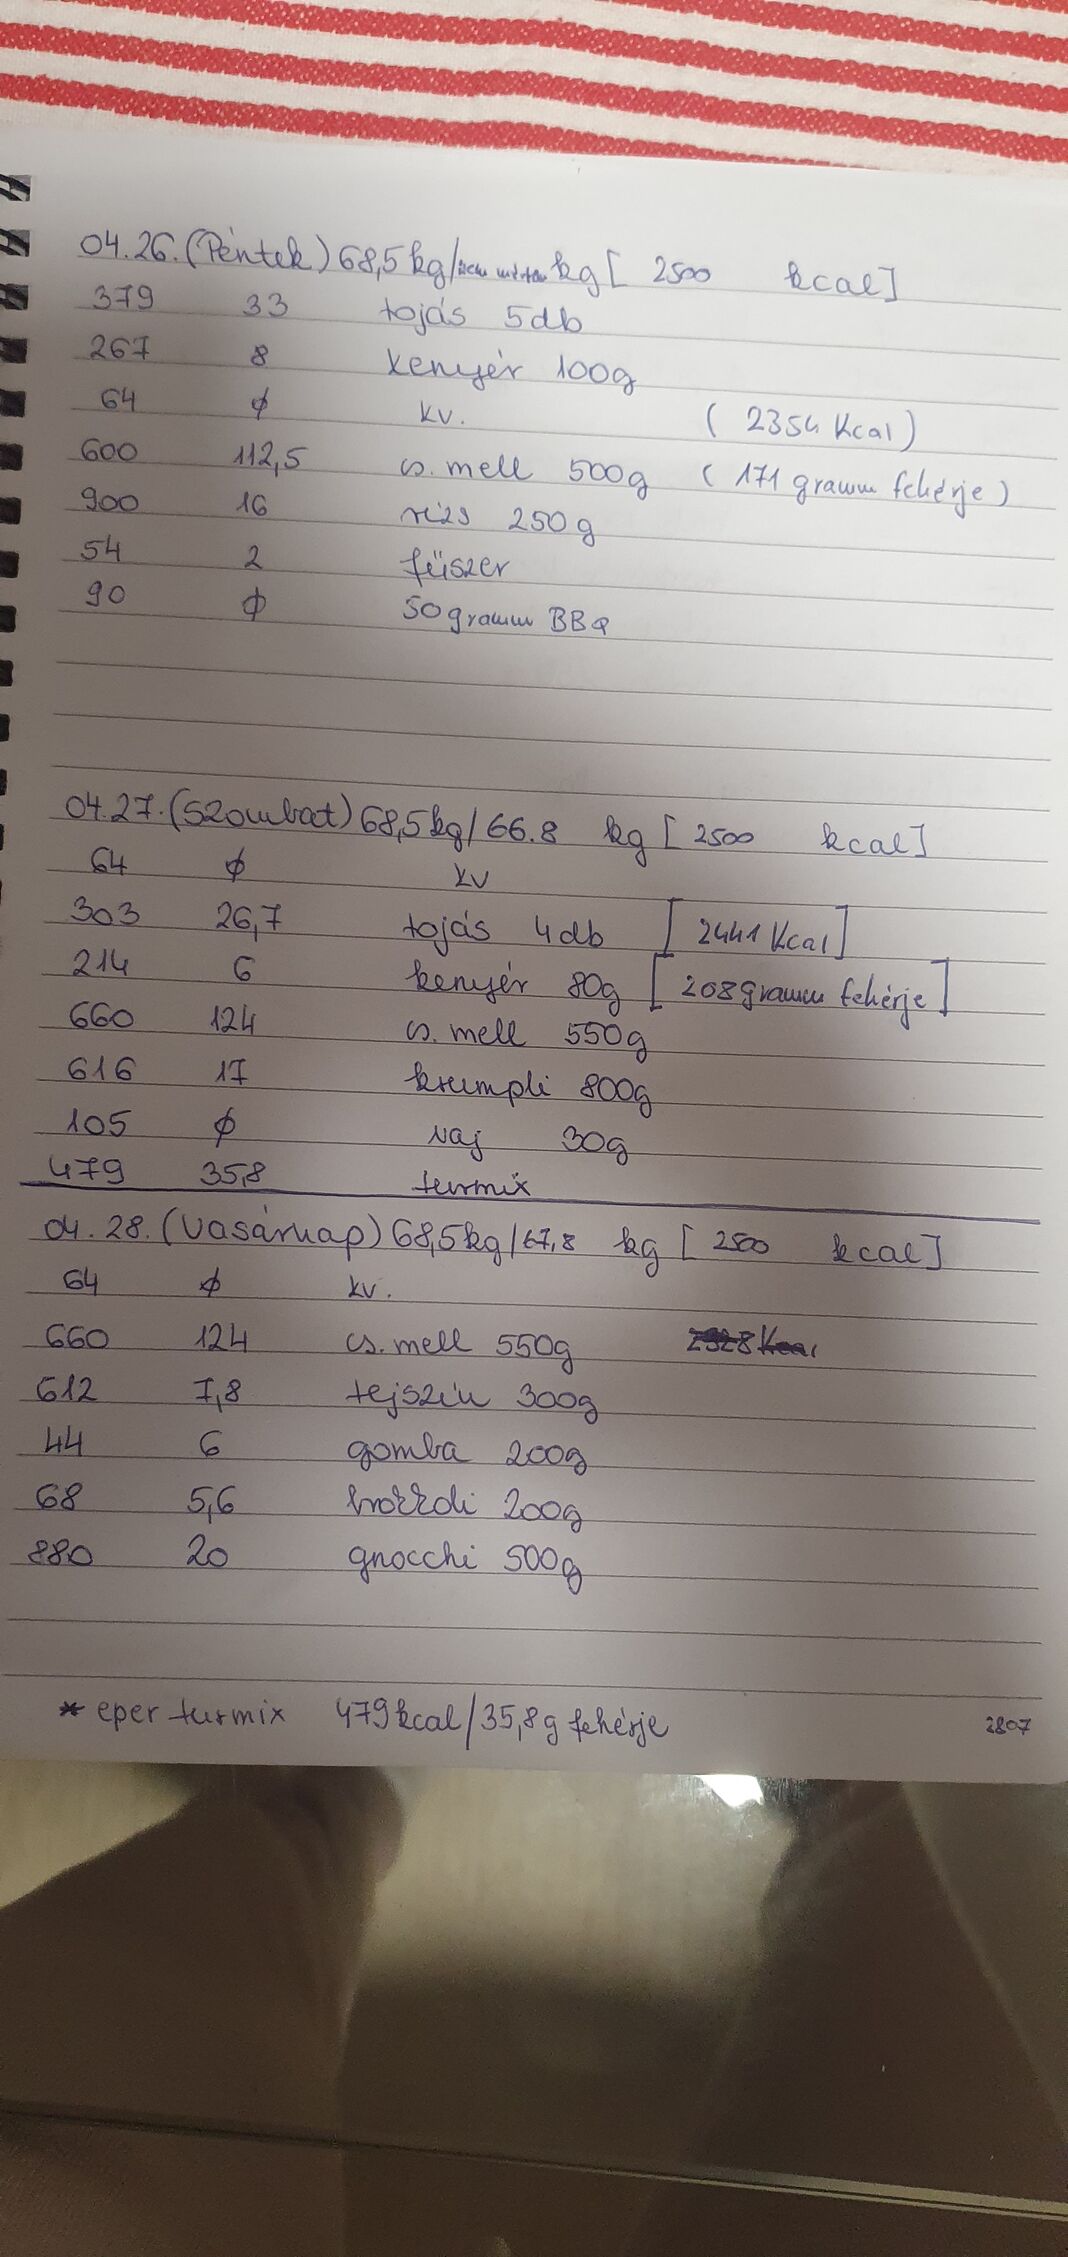 04.26. (Péntek) 68,5kg/nem mértem kg [ 2500 kcal]
379 33 tojás 5db
267 8 kenyér 100g
64 ϕ kv. (2354 Kcal)
600 112,5 cs. mell 500g (171 gramm fehérje)
900 16 rizs 250g
54 2 fűszer
90 ϕ 50 gramm BBQ
04.27. (Szombat) 68,5kg/66.8 kg [2500 kcal]
64 ϕ kv
303 26,7 tojás 4db [2441 Kcal]
214 6 kenyér 80g [208 gramm fehérje]
660 124 cs. mell 550g
616 17 krumpli 800g
105 ϕ vaj 30g
479 35,8 turmix
04.28. (Vasárnap) 68,5kg/67,8 kg [2500 kcal]
64 ϕ kv.
660 124 cs. mell 550g
612 7,8 tejszín 300g
44 6 gomba 200g
68 5,6 brokkoli 200g
880 20 gnocchi 500g
* eper turmix 479kcal/35,8g fehérje 2807